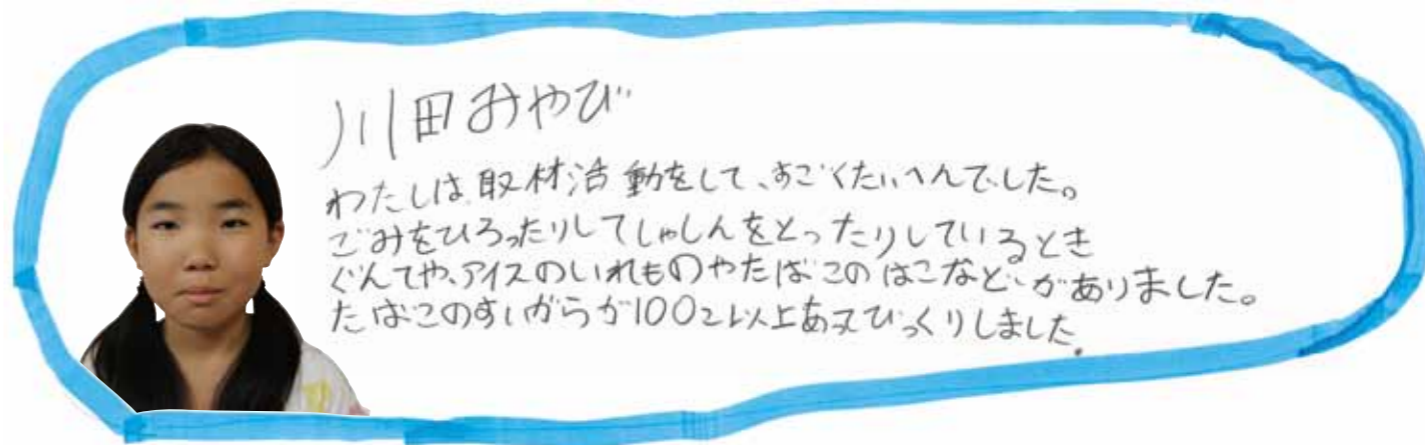 川田みやび
わたしは、取材活動をして、すごくたいへんでした。
ごみをひろったりしてしゃしんをとったりしているとき
ぐんてや、アイスのいれものやたばこのはこなどがありました。
たばこのすいがらが100こ以上あってびっくりしました。